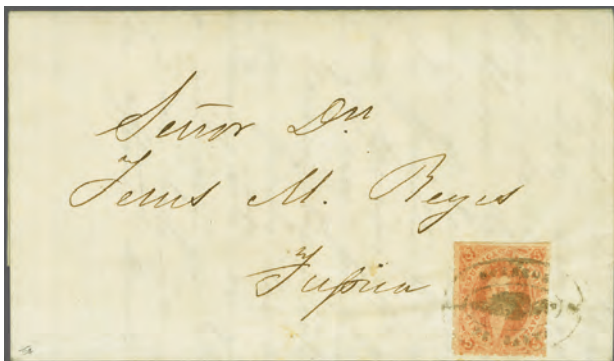 Señor Dn
Jesus M. Reyes
Tupiza